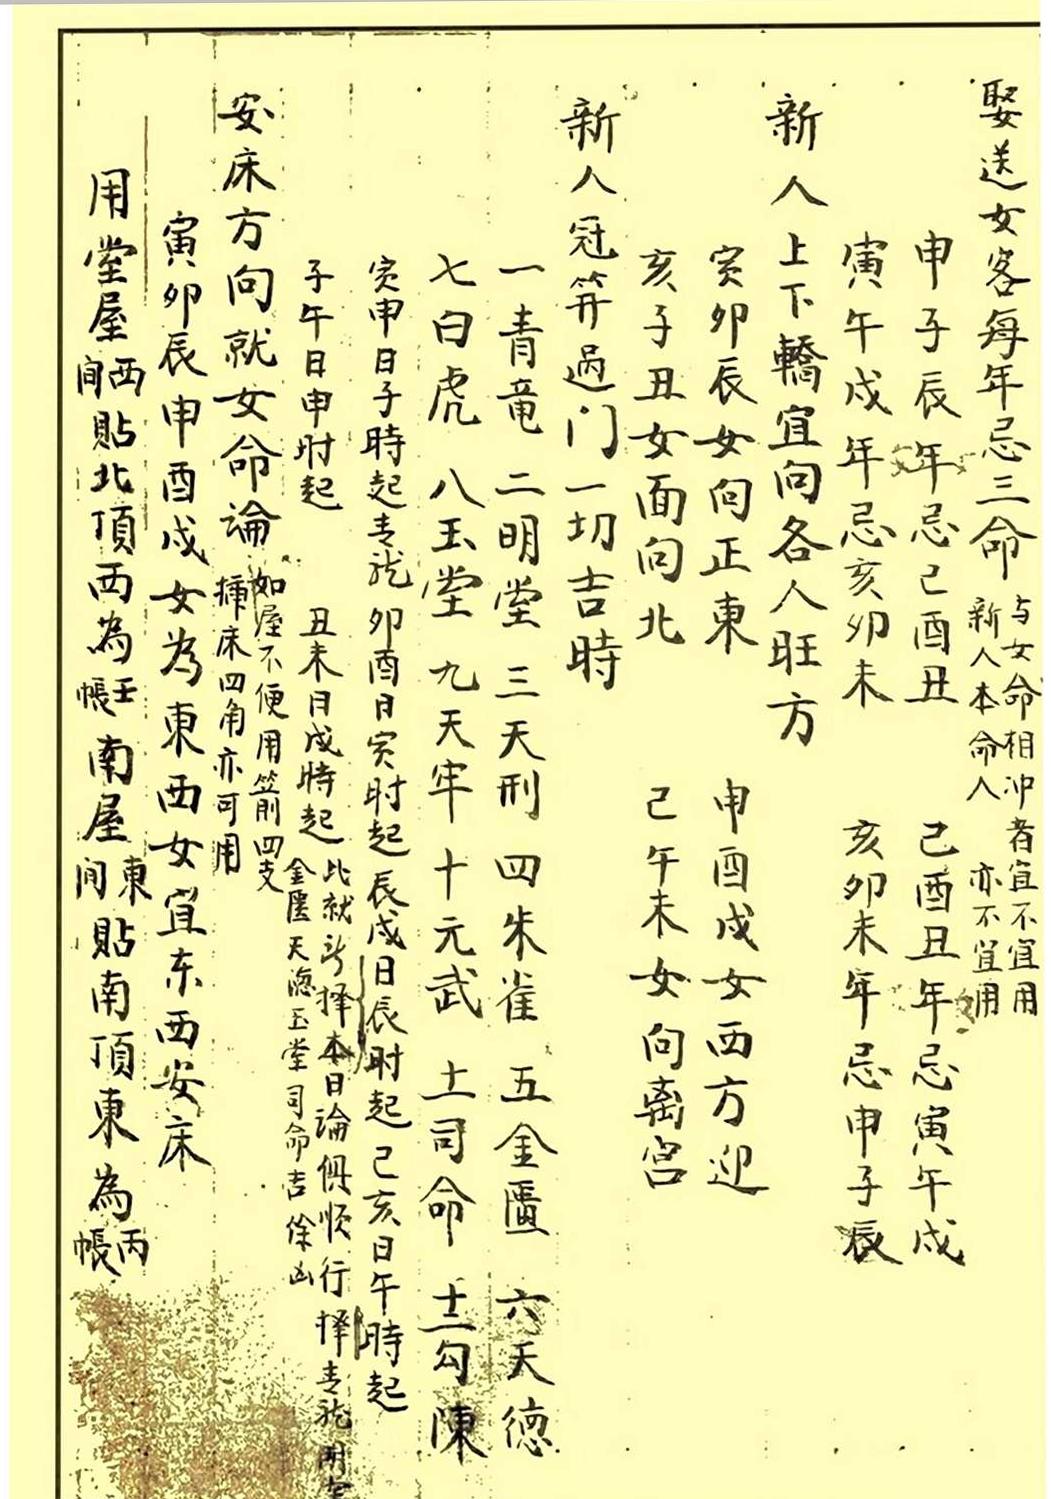 娶送女客每年忌三命 与女命相冲者宜不宜用
新人本命人 亦不宜用
申子辰年忌己酉丑 己酉丑年忌寅午戌
寅午戌年忌亥卯未 亥卯未年忌申子辰
新人上下轎宜向各人旺方
寅卯辰女向正東 申酉戌女西方迎
亥子丑女面向北 己午未女向离宫
新人冠笄過门一切吉時
一青竜 二明堂 三天刑 四朱雀 五金匱 六天德
七白虎 八玉堂 九天牢 十元武 土司命 士勾陳
寅申日子時起青龙 卯酉日寅时起 辰戌日辰时起 己亥日午時起
子午日申时起 丑未日戌時起 此就 择本日論俱順行择青龙
金匱天德玉堂司命吉 徐凶
安床方向就女命論 如屋不便用箭四支
挿床四角亦可用
寅卯辰申酉戌女为東西女宜东西安床
用堂屋西间貼北頂西為壬帳 南屋東间貼南頂東為丙帳